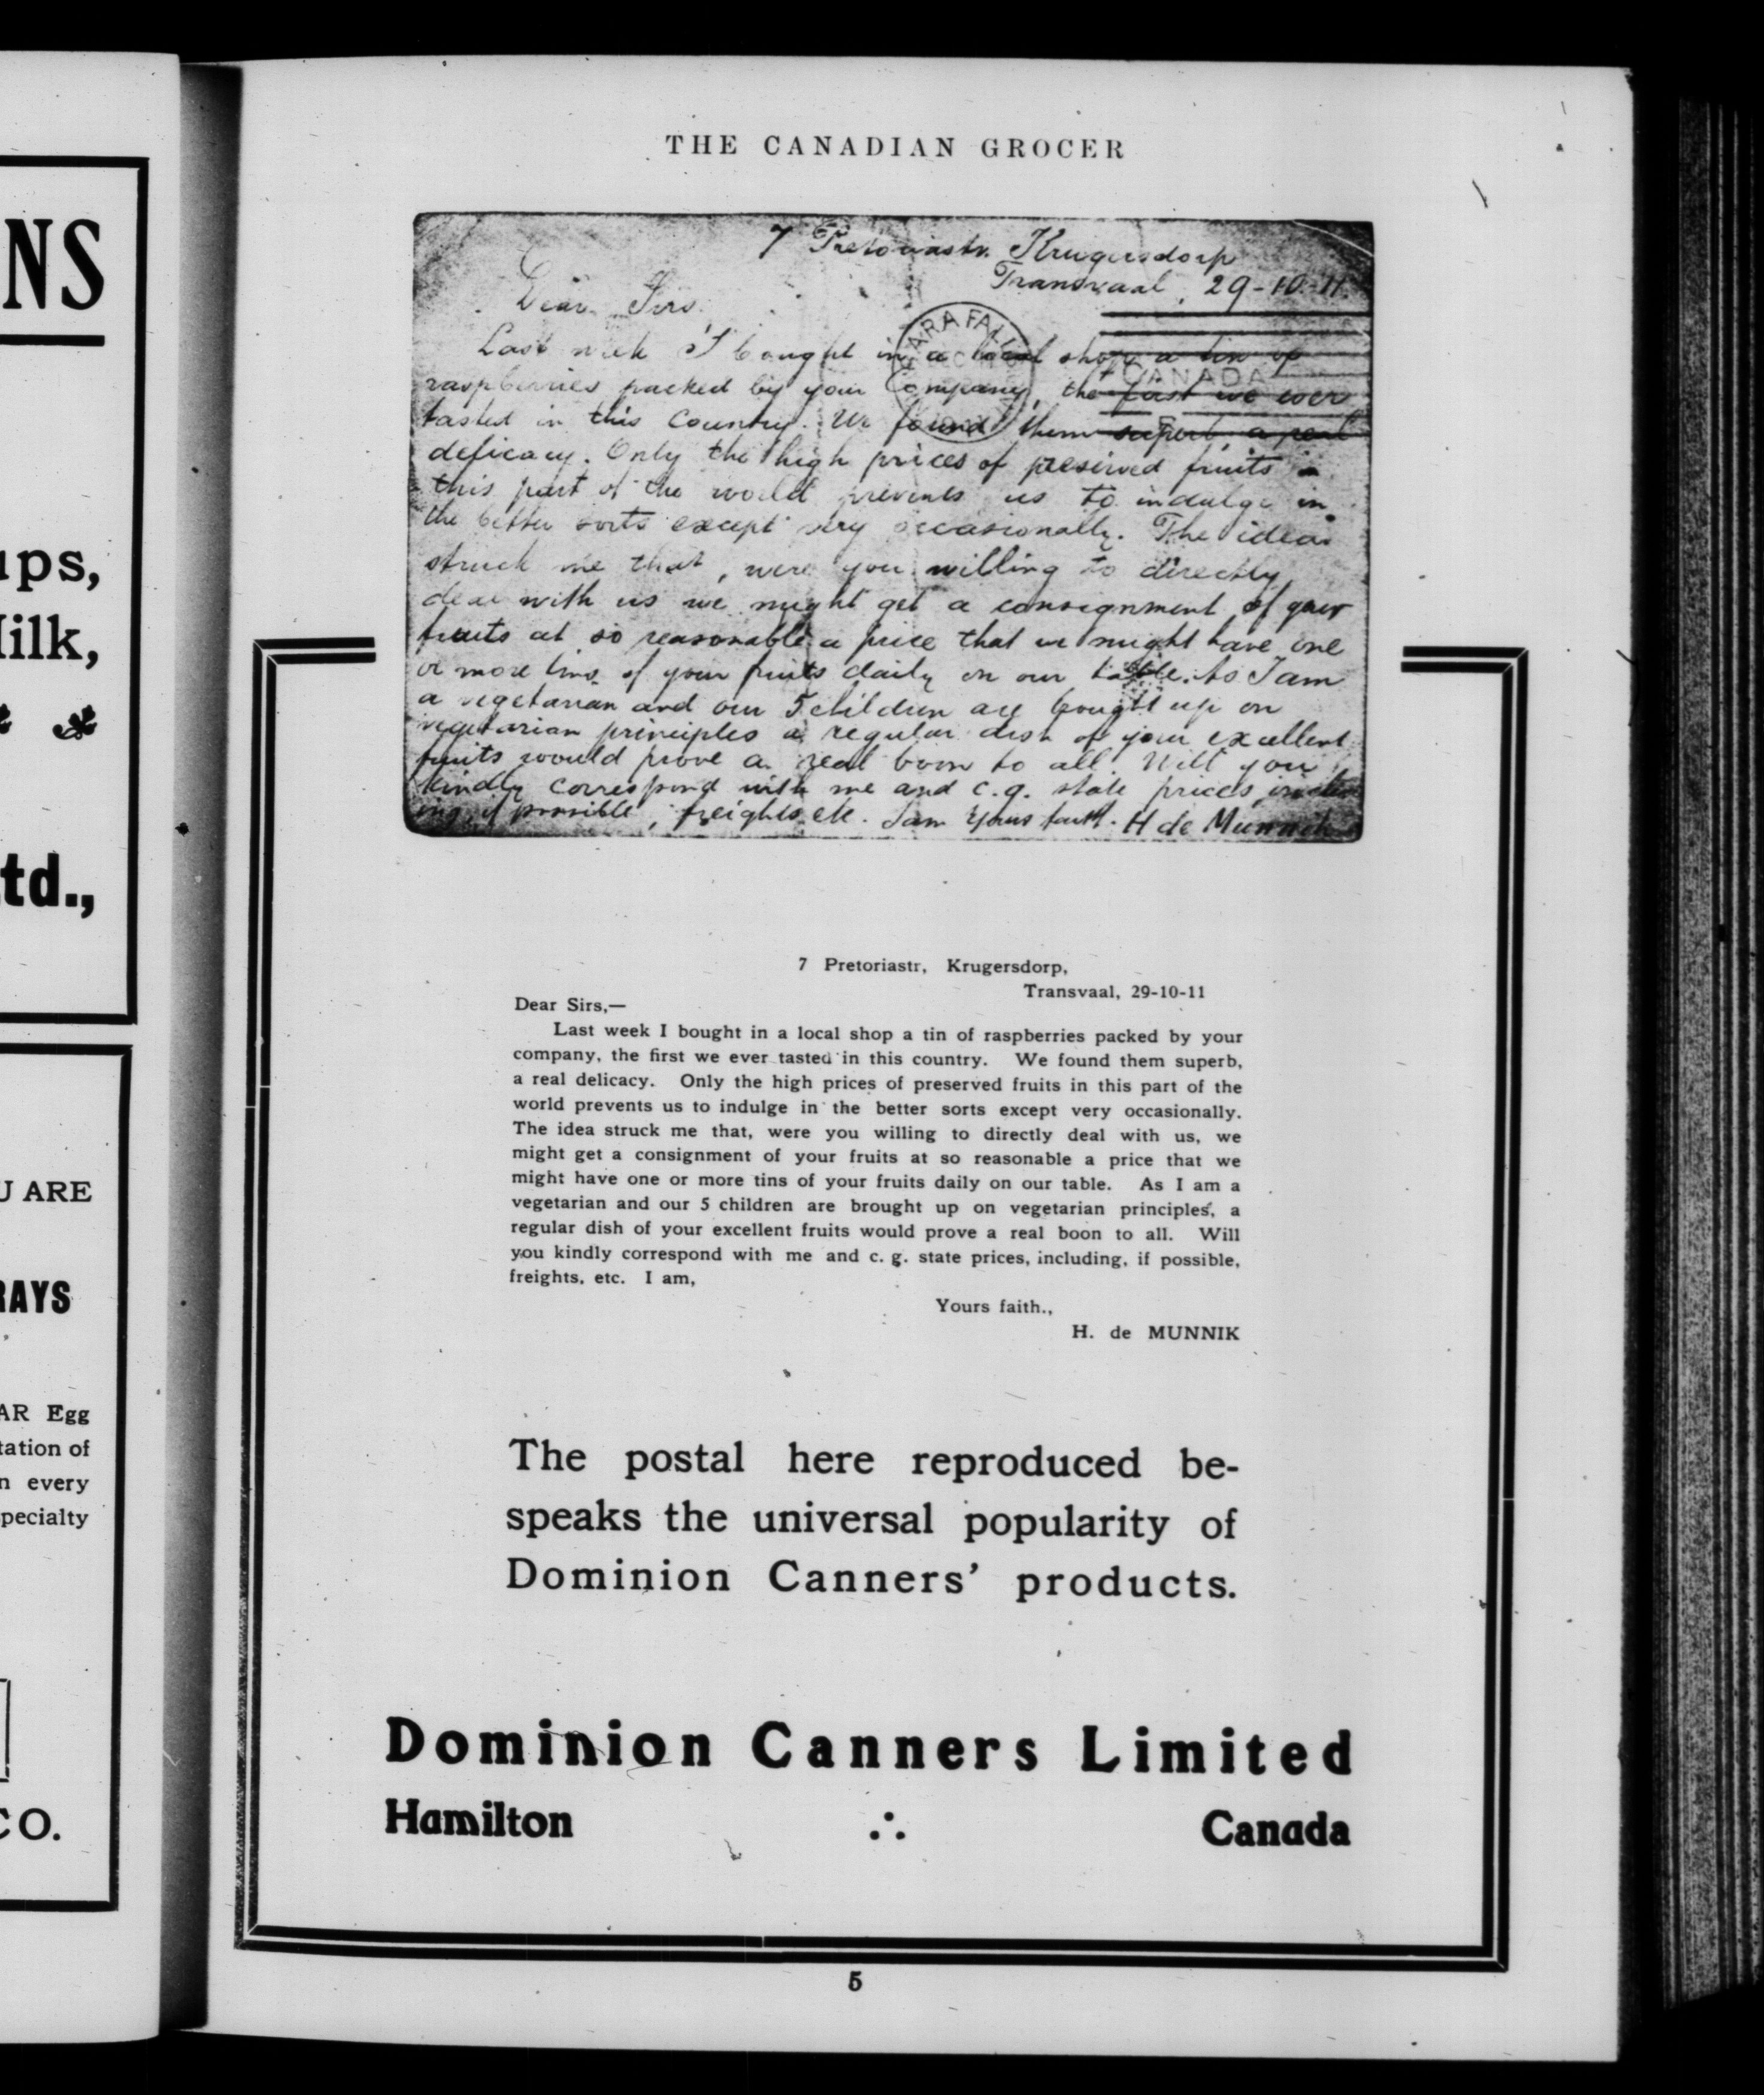 NS
ups,
Milk,
Ltd.,
U ARE
RAYS
AR Egg
tation of
n every
pecialty
CO.
THE CANADIAN GROCER
7 Pretoriastr. Krugersdorp
Transvaal, 29-10-11.
Dear Sirs.
Last week I bought in a local shop a tin of
raspberries packed by your Company, the first we ever
tasted in this Country. We found them superb, a real
delicacy. Only the high prices of preserved fruits in
this part of the world prevents us to indulge in
the better sorts except very occasionally. The idea
struck me that, were you willing to directly
deal with us we might get a consignment of your
fruits at so reasonable a price that we might have one
or more tins of your fruits daily on our table. As I am
a vegetarian and our 5 children are brought up on
vegetarian principles a regular dish of your excellent
fruits would prove a real boon to all. Will you
kindly correspond with me and c.g. state prices, includ
ing, if possible, freights etc. I am Yours faith. H de Munnik
CANADA
7 Pretoriastr, Krugersdorp,
Transvaal, 29-10-11
Dear Sirs,—
Last week I bought in a local shop a tin of raspberries packed by your
company, the first we ever tasted in this country. We found them superb,
a real delicacy. Only the high prices of preserved fruits in this part of the
world prevents us to indulge in the better sorts except very occasionally.
The idea struck me that, were you willing to directly deal with us, we
might get a consignment of your fruits at so reasonable a price that we
might have one or more tins of your fruits daily on our table. As I am a
vegetarian and our 5 children are brought up on vegetarian principles, a
regular dish of your excellent fruits would prove a real boon to all. Will
you kindly correspond with me and c. g. state prices, including, if possible,
freights, etc. I am,
Yours faith.,
H. de MUNNIK
The postal here reproduced be-
speaks the universal popularity of
Dominion Canners' products.
Dominion Canners Limited
Hamilton ∴ Canada
5